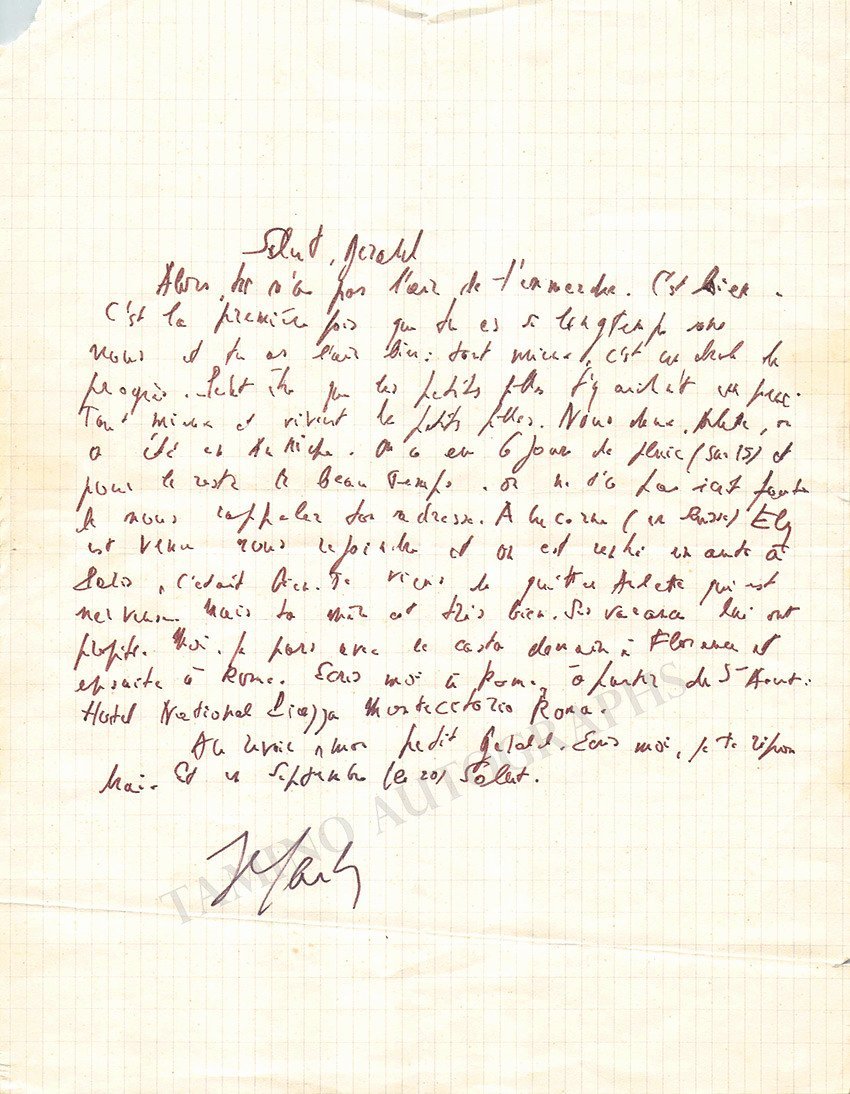 Salut, Gérald
Alors, tu n'as pas l'air de t'emmerder. C'est bien.
C'est la première fois que tu es si longtemps sans
nous et tu as l'air bien: tant mieux, c'est un de
progrès. Peut être que les petites filles y un peu.
Tant mieux et vivent les petites filles. Nous deux, Arlette, on
a été en Autriche. On a eu 6 jours de pluie (sur 15) et
pour le reste le beau temps. on ne t'a pas écrit faute
de nous rappeler ton adresse. A Lucerne (en Suisse) Ely
est venu nous rejoindre et on est rentré en auto à
Paris, c'était bien. Je viens de quitter Arlette qui est
nerveuse mais ta mère est très bien. Ses vacances lui ont
profité. Moi, je pars avec le castor demain à Florence et
ensuite à Rome. Ecris moi à Rome, à partir du 5 Aout:
Hotel National Piazza Montecitorio Roma.
Au revoir, mon petit Gérald. Ecris moi, je te répon
drai. Et en Septembre (le 20) Salut.
TAMINO AUTOGRAPHS